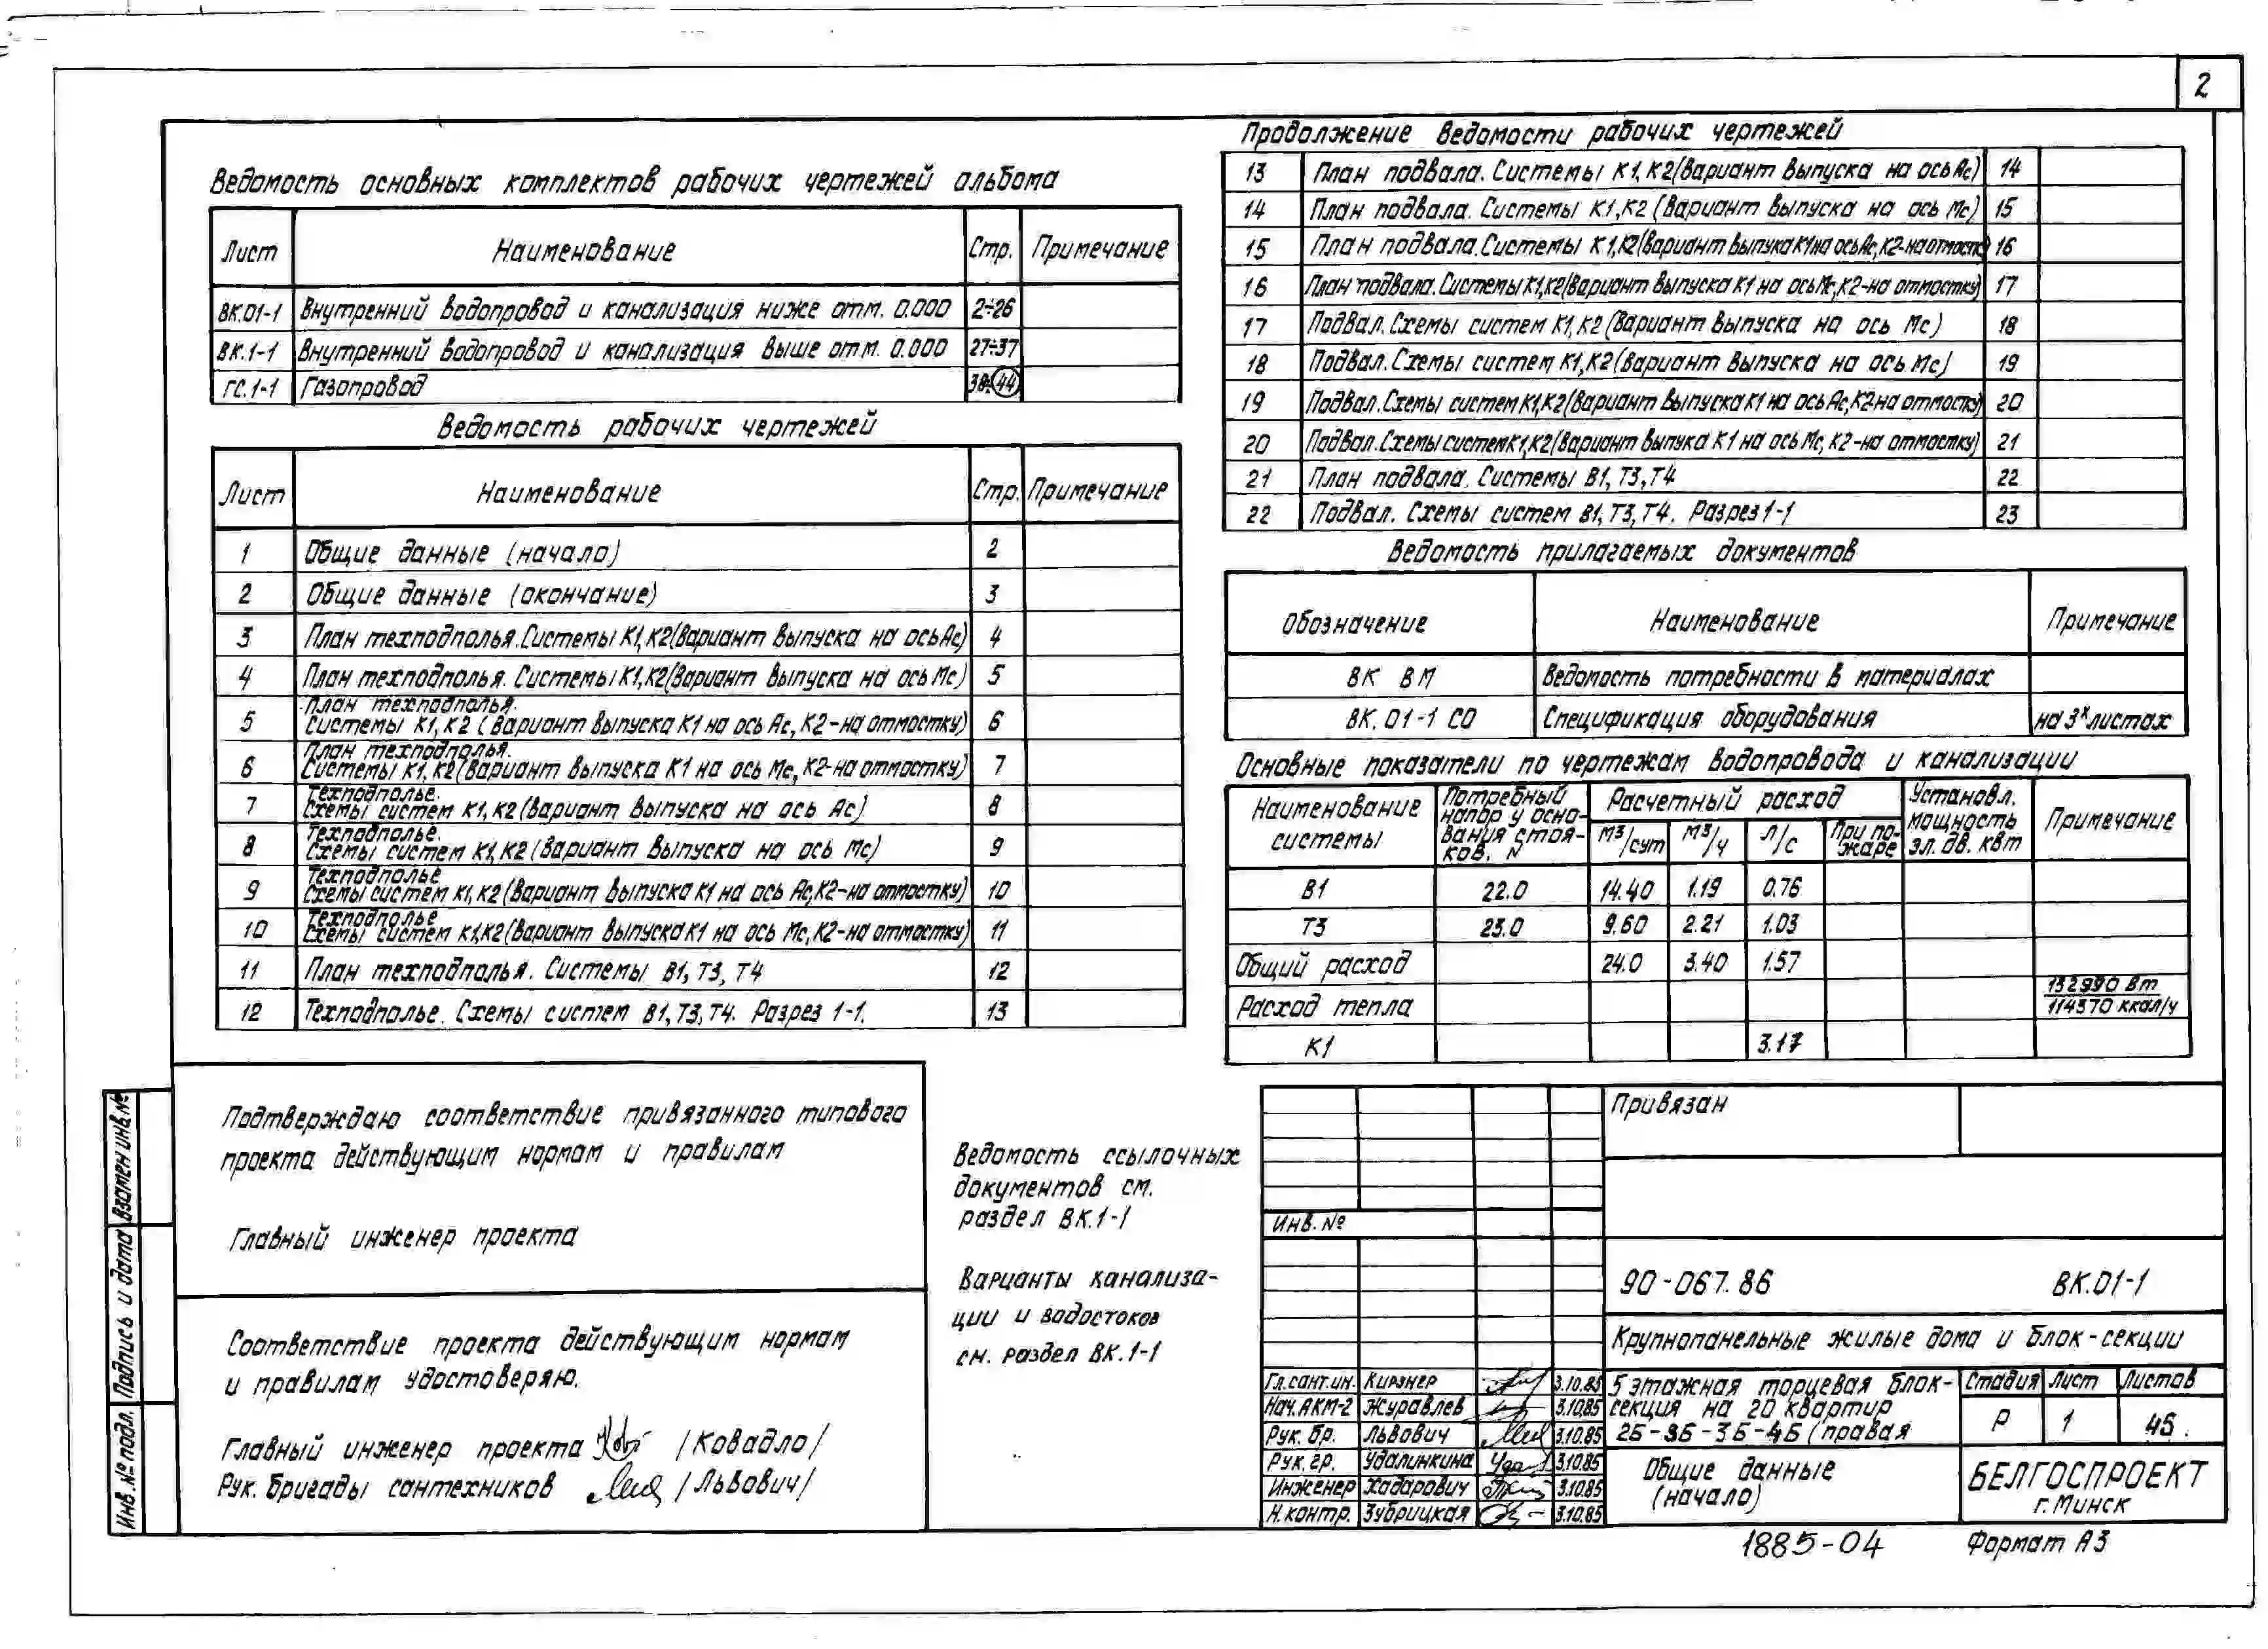 2
Ведомость основных комплектов рабочих чертежей альбома
Лист Наименование Стр. Примечание
ВК.01-1 Внутренний водопровод и канализация ниже отм. 0.000 2÷26
ВК.1-1 Внутренний водопровод и канализация выше отм. 0.000 27÷37
ГС.1-1 Газопровод 38÷44
Ведомость рабочих чертежей
Лист Наименование Стр. Примечание
1 Общие данные (начало) 2
2 Общие данные (окончание) 3
3 План техподполья. Системы К1, К2 (Вариант выпуска на ось Ас) 4
4 План техподполья. Системы К1, К2 (Вариант выпуска на ось Мс) 5
План техподполья.
5 Системы К1, К2 (Вариант выпуска К1 на ось Ас, К2-на отмостку) 6
План техподполья.
6 Системы К1, К2 (Вариант выпуска К1 на ось Мс, К2-на отмостку) 7
Техподполье.
7 Схемы систем К1, К2 (Вариант выпуска на ось Ас) 8
Техподполье.
8 Схемы систем К1, К2 (Вариант выпуска на ось Мс) 9
Техподполье
9 Схемы систем К1, К2 (Вариант выпуска К1 на ось Ас, К2-на отмостку) 10
Техподполье
10 Схемы систем К1, К2 (Вариант выпуска К1 на ось Мс, К2-на отмостку) 11
11 План техподполья. Системы В1, Т3, Т4 12
12 Техподполье. Схемы систем В1, Т3, Т4. Разрез 1-1. 13
Продолжение ведомости рабочих чертежей
13 План подвала. Системы К1, К2 (Вариант выпуска на ось Ас) 14
14 План подвала. Системы К1, К2 (Вариант выпуска на ось Мс) 15
15 План подвала. Системы К1, К2 (Вариант выпука К1 на ось Ас, К2-на отмостк) 16
16 План подвала. Системы К1, К2 (Вариант выпуска К1 на ось Мс, К2-на отмостку) 17
17 Подвал. Схемы систем К1, К2 (Вариант выпуска на ось Мс) 18
18 Подвал. Схемы систем К1, К2 (Вариант выпуска на ось Мс) 19
19 Подвал. Схемы систем К1, К2 (Вариант выпуска К1 на ось Ас, К2-на отмостку) 20
20 Подвал. Схемы систем К1, К2 (Вариант выпука К1 на ось Мс, К2-на отмостку) 21
21 План подвала. Системы В1, Т3, Т4 22
22 Подвал. Схемы систем В1, Т3, Т4. Разрез 1-1 23
Ведомость прилагаемых документов
Обозначение Наименование Примечание
ВК ВМ Ведомость потребности в материалах
ВК.01-1 СО Спецификация оборудования на 3х листах
Основные показатели по чертежам водопровода и канализации
Наименование системы Потребный напор у основания стояков. Расчетный расход Установл. мощность эл. дв. квт Примечание
м3/сут м3/ч л/с При пожаре
В1 22.0 14.40 1.19 0.76
Т3 23.0 9.60 2.21 1.03
Общий расход 24.0 3.40 1.57
Расход тепла 132990 Вт
114370 ккал/ч
К1 3.17
Подтверждаю соответствие привязанного типового
проекта действующим нормам и правилам
Главный инженер проекта
Соответствие проекта действующим нормам
и правилам удостоверяю.
Главный инженер проекта /Ковадло/
Рук. бригады сантехников /Львович/
Ведомость ссылочных
документов см.
раздел ВК.1-1
Варианты канализа-
ции и водостоков
см. раздел ВК.1-1
Взамен инв.№
Подпись и дата
Инв.№ подл.
Привязан
Инв. №
90-067.86 ВК.01-1
Крупнопанельные жилые дома и блок-секции
Гл.сант.ин. Кирзнер 3.10.85
Нач.АКМ-2 Журавлев 3.10.85
Рук. бр. Львович 3.10.85
Рук. гр. Удалинкина 3.10.85
Инженер Хадарович 3.10.85
Н.контр. Зубрицкая 3.10.85
5 этажная торцевая блок-
секция на 20 квартир
2Б-3Б-3Б-4Б (правая
Стадия Лист Листов
Р 1 45.
Общие данные
(начало)
БЕЛГОСПРОЕКТ
г. Минск
1885-04 Формат А3